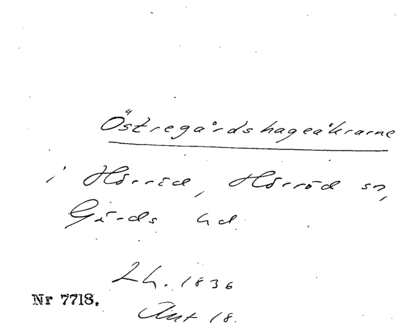 Östregårdshageåkrarne
i Hörröd, Hörröd sn,
Gärds hd.
Lh. 1836
Nr 7718.
Akt 18.